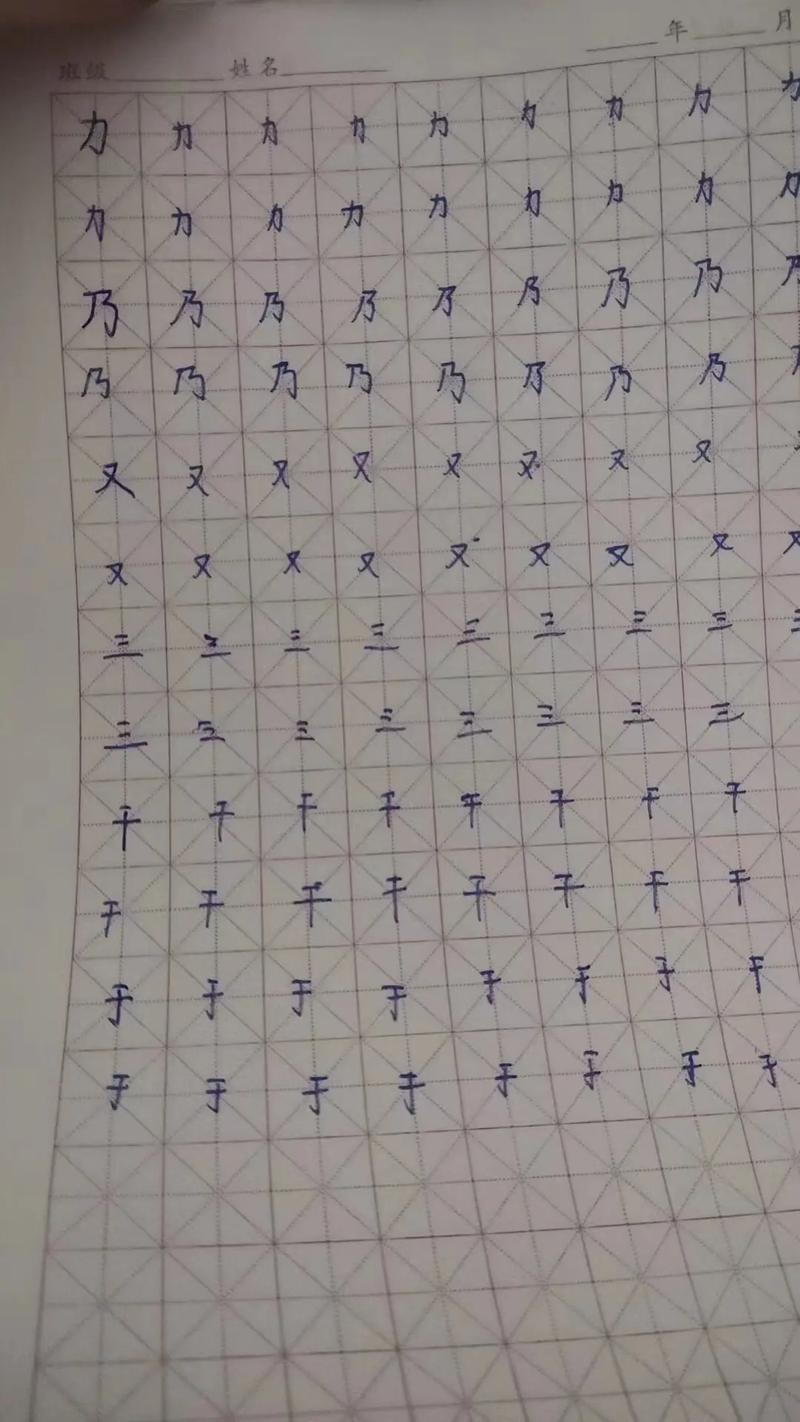 班级 姓名 年 月
力 力 力 力 力 力 力 力 力
力 力 力 力 力 力 力 力 力
乃 乃 乃 乃 乃 乃 乃 乃 乃
乃 乃 乃 乃 乃 乃 乃 乃
又 又 又 又 又 又 又 又
又 又 又 又 又 又 又 又 又
三 三 三 三 三 三 三 三 三
三 三 三 三 三 三 三 三
干 干 干 干 干 干 干 干
干 干 干 干 干 干 干 干
于 于 于 于 于 于 于 于
于 于 于 于 于 于 于 于